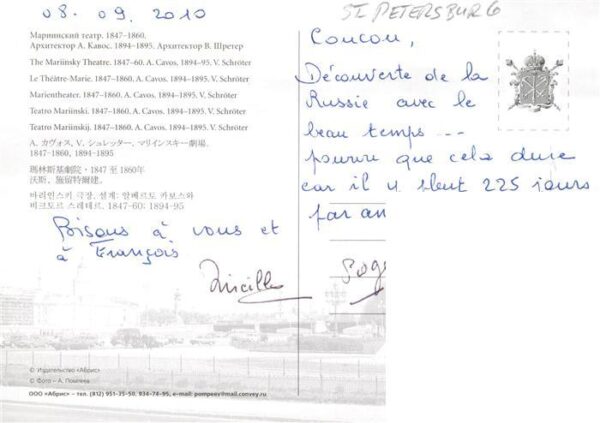 08. 09. 2010
ST PETERSBURG
Мариинский театр. 1847–1860.
Архитектор А. Кавос. 1894–1895. Архитектор В. Шретер
The Mariinsky Theatre. 1847–60. A. Cavos. 1894–95. V. Schröter
Le Théâtre-Marie. 1847–1860. A. Cavos. 1894–1895. V. Schröter
Marientheater. 1847–1860. A. Cavos. 1894–1895. V. Schröter
Teatro Mariinski. 1847–1860. A. Cavos. 1894–1895. V. Schröter
Teatro Mariinskij. 1847–1860. A. Cavos. 1894–1895. V. Schröter
A. カヴォス, V. シュレッター. マリインスキー劇場.
1847–1860, 1894–1895
瑪林斯基劇院・1847 至 1860年
沃斯、施留特爾建。
마리인스키 극장. 설계: 알베르토 카보스와
빅토르 스레테르. 1847-60: 1894-95
Coucou,
Découverte de la
Russie avec le
beau temps ...
pourvu que cela dure
car il y pleut 225 jours
par an
Bisous à vous et
à François
© Издательство «Абрис»
© Фото –
ООО «Абрис» – тел. (812) 951-35-50, 934-74-95, e-mail: pompeey@mail.convey.ru